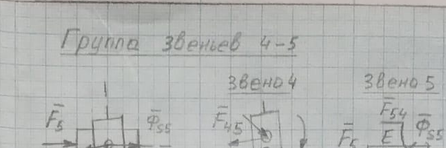 Группа звеньев 4-5
Звено 4 Звено 5
F̅5 Φ̅S5 F̅45 F̅54 Φ̅S5
F̅5 E